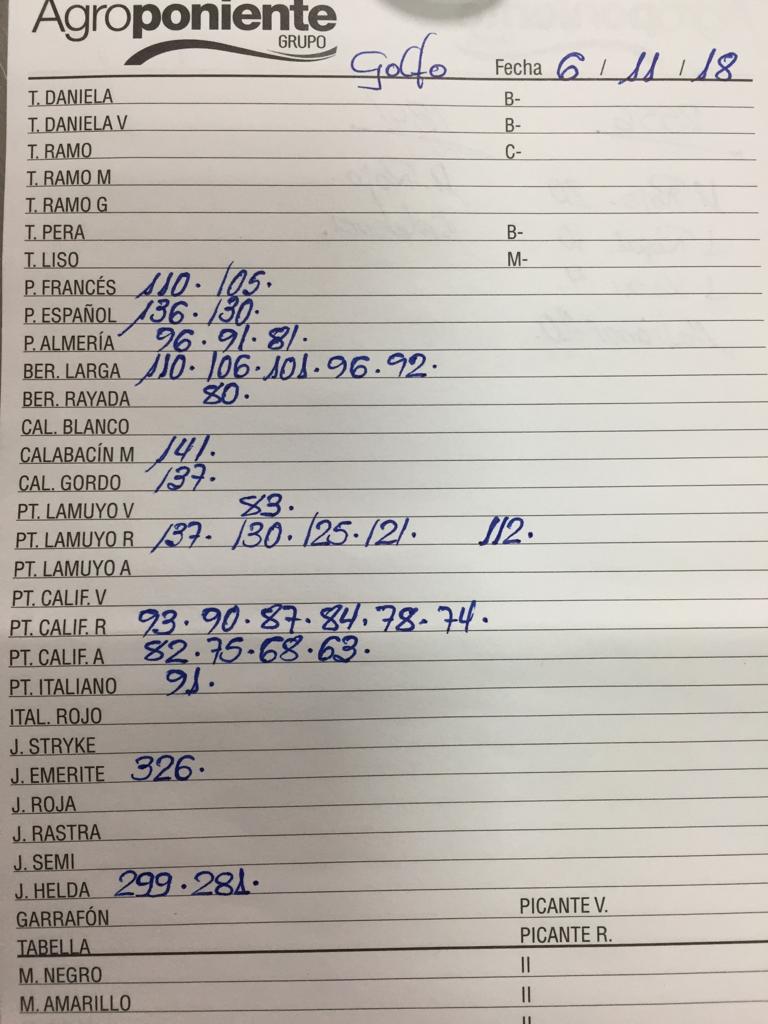 Agroponiente
GRUPO
Golfo Fecha 6 / 11 / 18
T. DANIELA B-
T. DANIELA V B-
T. RAMO C-
T. RAMO M
T. RAMO G
T. PERA B-
T. LISO M-
P. FRANCÉS 110. 105.
P. ESPAÑOL 136. 130.
P. ALMERÍA 96. 91. 81.
BER. LARGA 110. 106. 101. 96. 92.
BER. RAYADA 80.
CAL. BLANCO
CALABACÍN M 141.
CAL. GORDO 137.
PT. LAMUYO V 83.
PT. LAMUYO R 137. 130. 125. 121. 112.
PT. LAMUYO A
PT. CALIF. V
PT. CALIF. R 93. 90. 87. 84. 78. 74.
PT. CALIF. A 82. 75. 68. 63.
PT. ITALIANO 91.
ITAL. ROJO
J. STRYKE
J. EMERITE 326.
J. ROJA
J. RASTRA
J. SEMI
J. HELDA 299. 281.
GARRAFÓN PICANTE V.
TABELLA PICANTE R.
M. NEGRO II
M. AMARILLO II
II